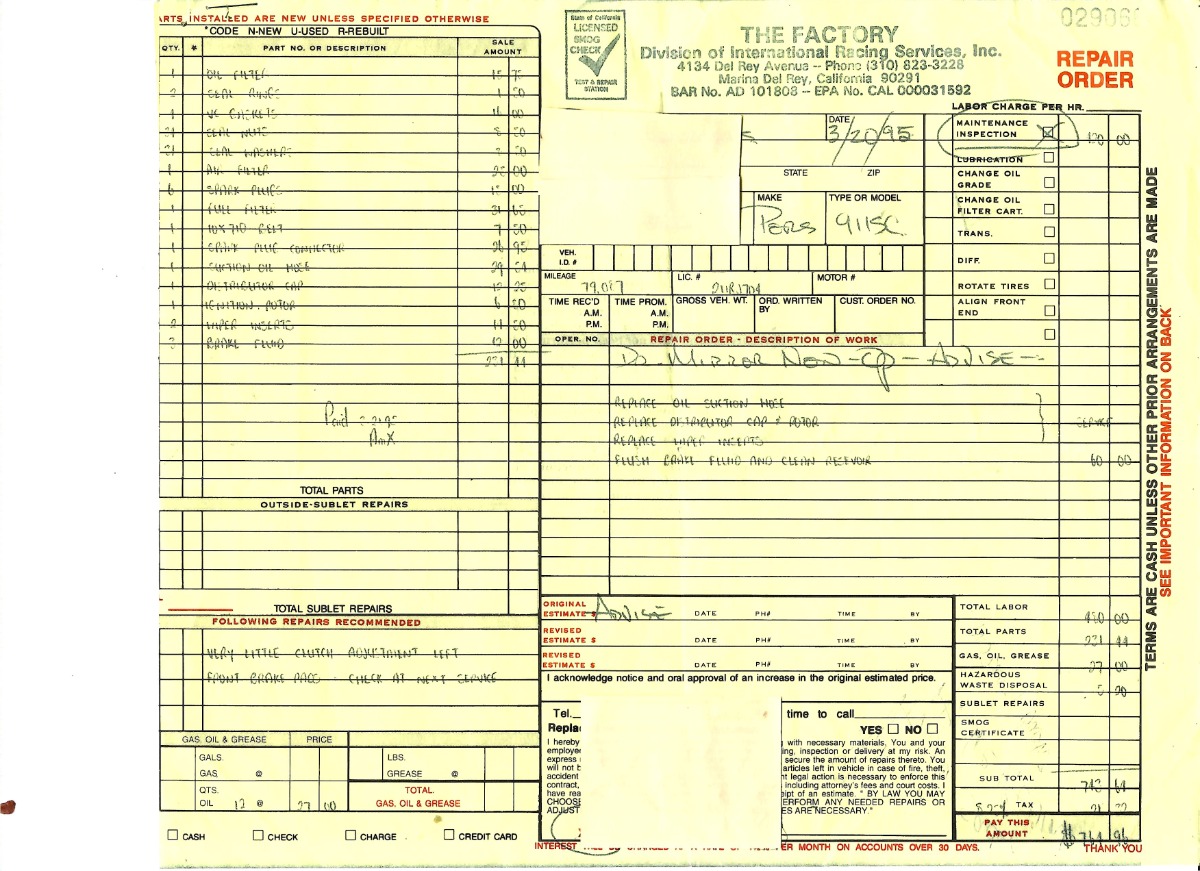 PARTS INSTALLED ARE NEW UNLESS SPECIFIED OTHERWISE
*CODE N-NEW U-USED R-REBUILT
QTY. * PART NO. OR DESCRIPTION SALE AMOUNT
1 OIL FILTER 15 75
2 SEAL RINGS 1 50
4 VC GASKETS 00
SEAL NUTS 8 50
SEAL WASHERS 50
1 AIR FILTER 00
6 SPARK PLUGS 00
1 FUEL FILTER 31
1 10X710 BELT 7 50
1 SPARK PLUG CONNECTOR 26 95
1 SUCTION OIL HOSE 29
1 DISTRIBUTOR CAP
1 IGNITION ROTOR 6 50
2 WIPER INSERTS 11 50
3 BRAKE FLUID 12 00
231 44
Paid
AmX
TOTAL PARTS
OUTSIDE-SUBLET REPAIRS
TOTAL SUBLET REPAIRS
FOLLOWING REPAIRS RECOMMENDED
VERY LITTLE CLUTCH ADJUSTMENT LEFT
FRONT BRAKE PADS - CHECK AT NEXT SERVICE
GAS, OIL & GREASE PRICE
GALS. GAS @
LBS. GREASE @
QTS. OIL 12 @ 27 00
TOTAL GAS, OIL & GREASE
CASH CHECK CHARGE CREDIT CARD
State of California
LICENSED
SMOG
CHECK
TEST & REPAIR
STATION
THE FACTORY
Division of International Racing Services, Inc.
4134 Del Rey Avenue -- Phone (310) 823-3228
Marina Del Rey, California 90291
BAR No. AD 101808 -- EPA No. CAL 000031592
02906
REPAIR
ORDER
DATE 3/20/95
STATE ZIP
MAKE TYPE OR MODEL
PORS 911SC
VEH. I.D. #
MILEAGE 79,087 LIC. # MOTOR #
TIME REC'D A.M. P.M.
TIME PROM. A.M. P.M.
GROSS VEH. WT. ORD. WRITTEN BY CUST. ORDER NO.
OPER. NO. REPAIR ORDER - DESCRIPTION OF WORK
MIRROR NON-OP - ADVISE -
REPLACE OIL SUCTION HOSE
REPLACE DISTRIBUTOR CAP & ROTOR SERVICE
REPLACE WIPER INSERTS
FLUSH BRAKE FLUID AND CLEAN RESEVOIR 60 00
LABOR CHARGE PER HR.
MAINTENANCE INSPECTION 00
LUBRICATION
CHANGE OIL GRADE
CHANGE OIL FILTER CART.
TRANS.
DIFF.
ROTATE TIRES
ALIGN FRONT END
TERMS ARE CASH UNLESS OTHER PRIOR ARRANGEMENTS ARE MADE
SEE IMPORTANT INFORMATION ON BACK
ORIGINAL ESTIMATE $ ADVISE DATE PH# TIME BY
REVISED ESTIMATE $ DATE PH# TIME BY
REVISED ESTIMATE $ DATE PH# TIME BY
I acknowledge notice and oral approval of an increase in the original estimated price.
Tel. time to call
Repla YES NO
I hereby with necessary materials. You and your
employee ing, inspection or delivery at my risk. An
express secure the amount of repairs thereto. You
will not b articles left in vehicle in case of fire, theft,
accident t legal action is necessary to enforce this
contract, including attorney's fees and court costs. I
have rea ipt of an estimate. " BY LAW YOU MAY
CHOOSE ERFORM ANY NEEDED REPAIRS OR
ADJUST ES ARE NECESSARY."
TOTAL LABOR 480 00
TOTAL PARTS 231 44
GAS, OIL, GREASE 27 00
HAZARDOUS WASTE DISPOSAL 5 20
SUBLET REPAIRS
SMOG CERTIFICATE
SUB TOTAL 743 64
TAX
PAY THIS AMOUNT $764 96
INTEREST PER MONTH ON ACCOUNTS OVER 30 DAYS.
THANK YOU